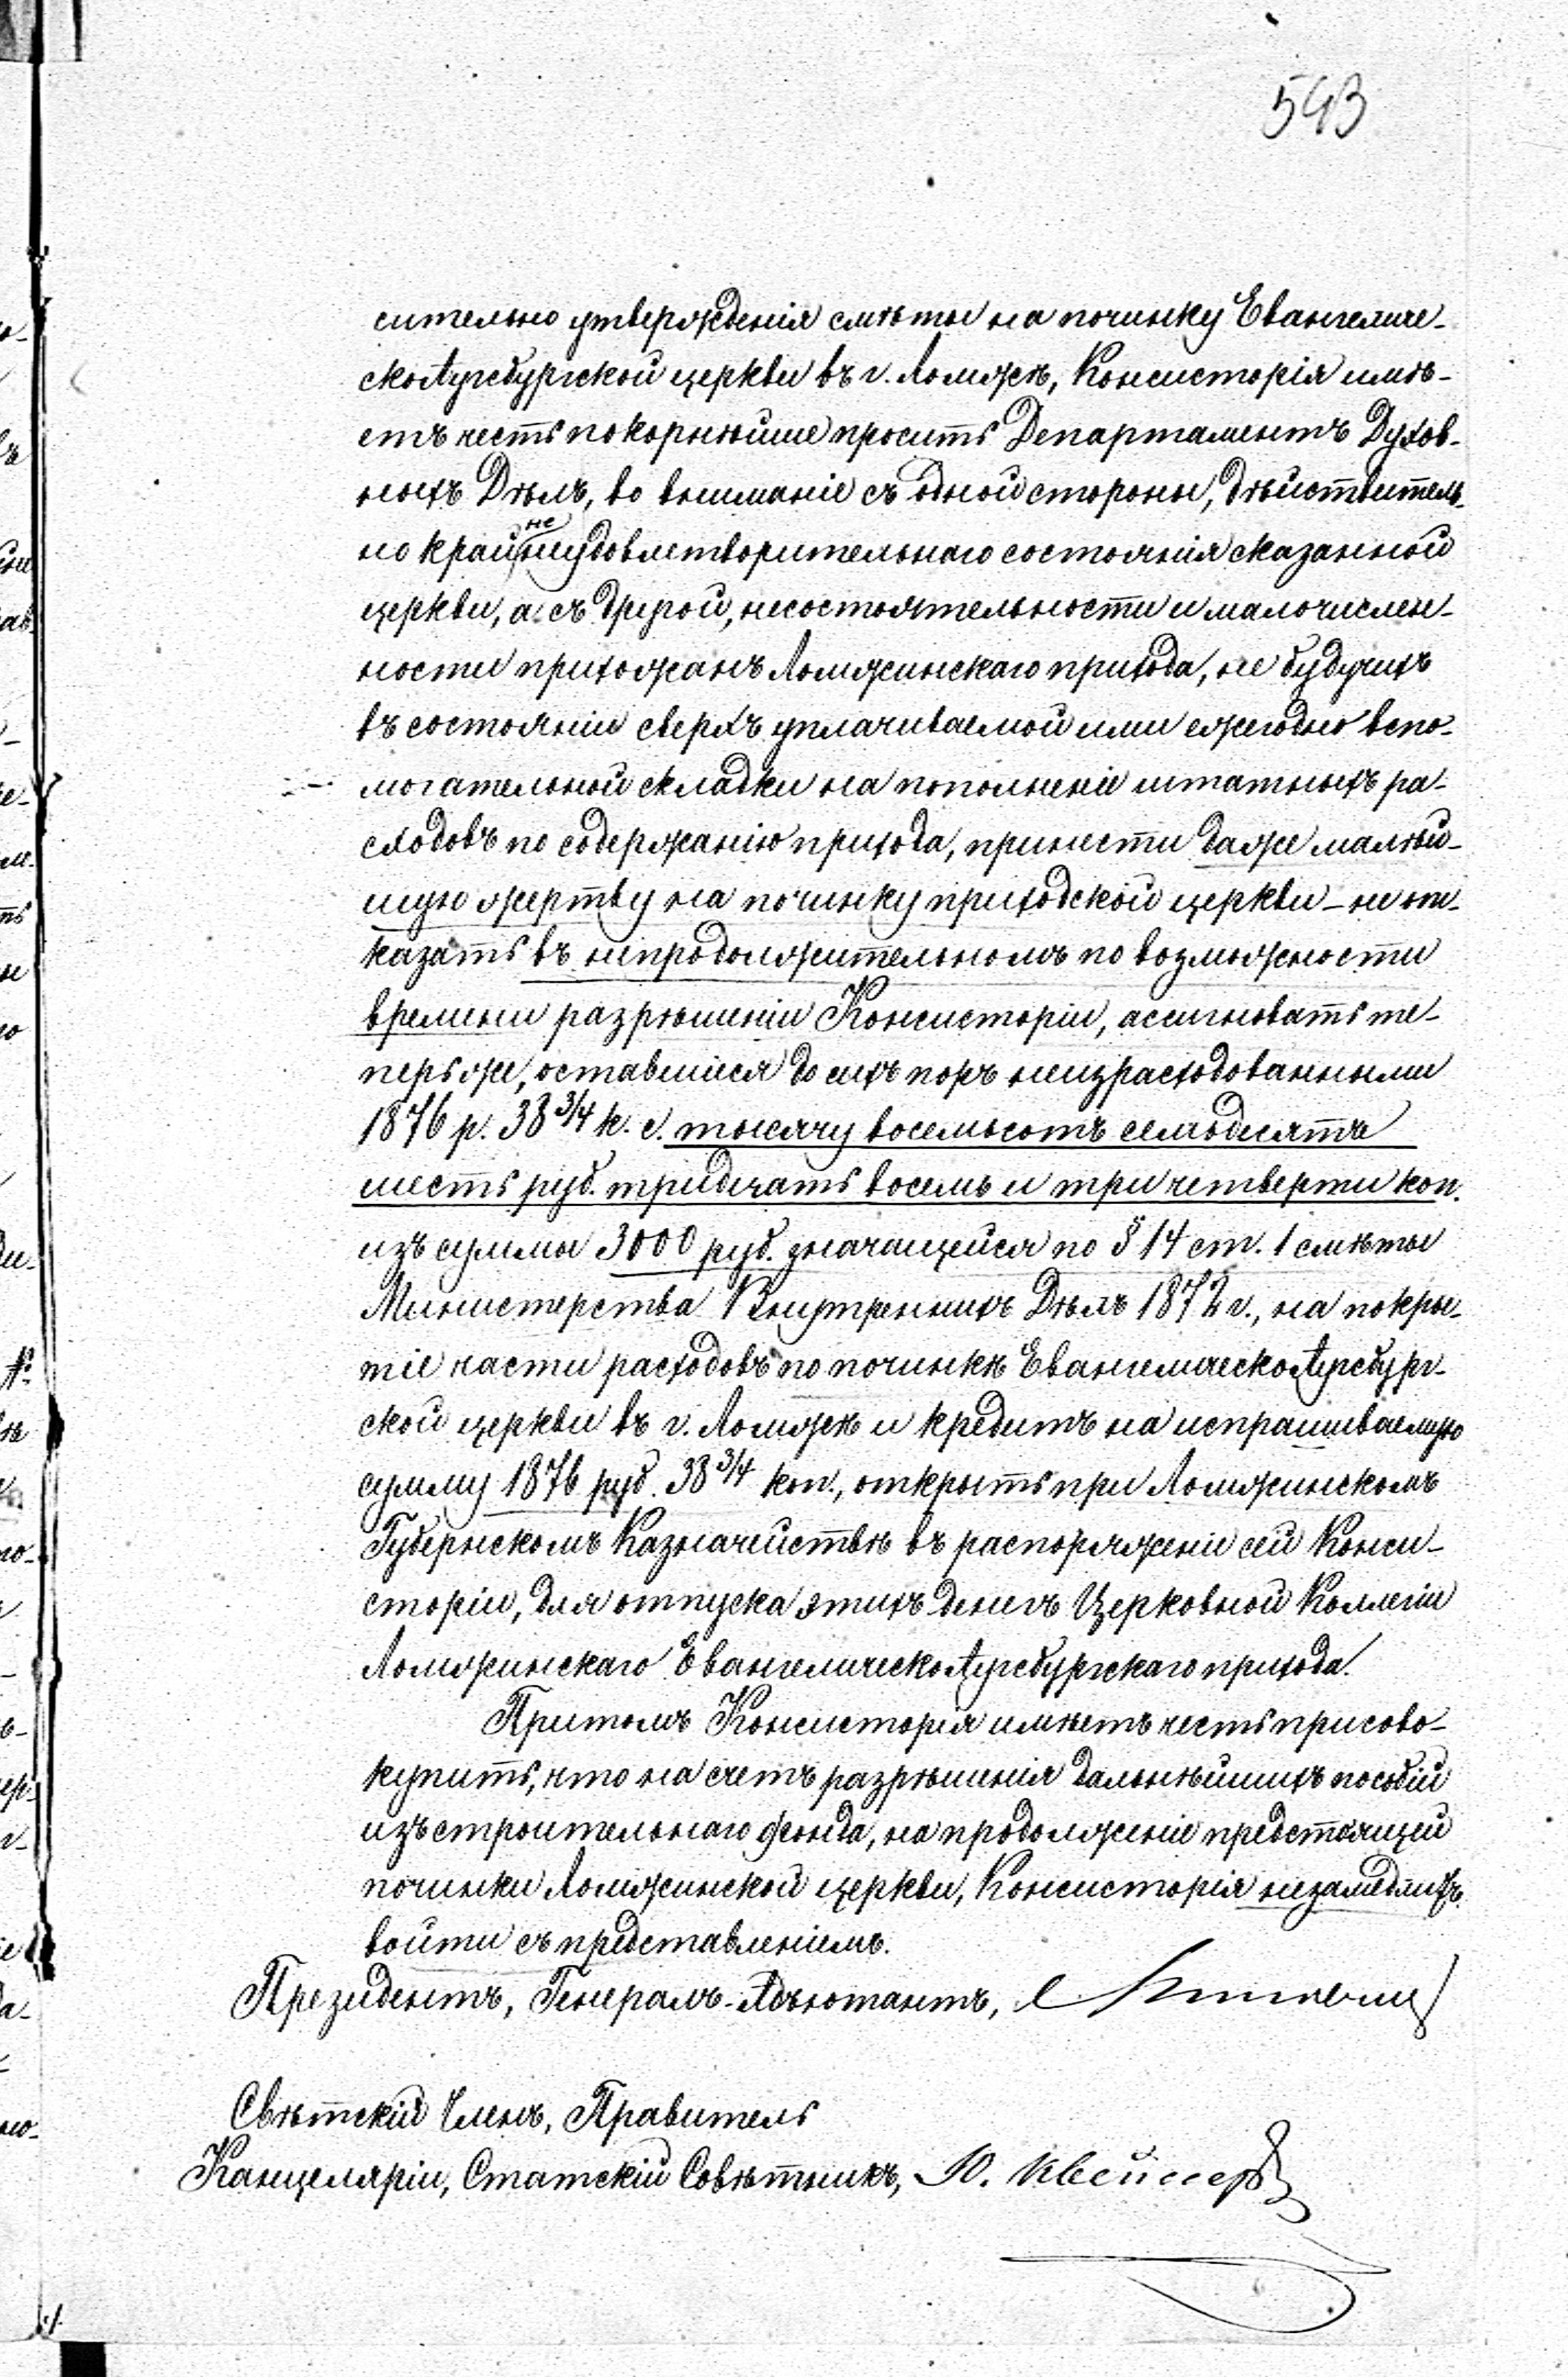 593
сительно утвержденія смѣты на починку Евангеличе-
скоАугсбургской церкви въ г. Ломжѣ, Консисторія имѣ-
етъ честь покорнѣйше просить Департаментъ Духов-
ныхъ Дѣлъ, во вниманіе съ одной стороны, дѣйствитель-
но крайне неудовлетворительнаго состоянія сказанной
церкви, а съ другой, несостоятельности и малочислен-
ности прихожанъ Ломжинскаго прихода, не будучихъ
въ состояніи сверхъ уплачиваемой ими ежегодно вспо-
могательной складки на пополненіе штатныхъ ра-
сходовъ по содержанію прихода, принести даже малѣй-
шую жертву на починку приходской церкви – не от-
казать въ непродолжительномъ по возможности
времени разрѣшеніи Консисторіи, ассигновать те-
перь же, оставшіеся до сихъ поръ неизрасходованными
1876 р. 38 3/4 к. с. тысячу восемьсотъ семьдесятъ
шесть руб. тридцать восемь и три четверти коп.
изъ суммы 3000 руб. значащейся по § 14 ст. 1 смѣты
Министерства Внутреннихъ Дѣлъ 1872 г., на покры-
тіе части расходовъ по починкѣ ЕвангелическоАугсбург-
ской церкви въ г. Ломжѣ и кредитъ на испрашиваемую
сумму 1876 руб. 38 3/4 коп., открыть при Ломжинскомъ
Губернскомъ Казначействѣ въ распоряженіи сей Конси-
сторіи, для отпуска этихъ денегъ Церковной Коллегіи
Ломжинскаго ЕвангелическоАугсбургскаго прихода.
Притомъ Консисторія имѣетъ честь присово-
купить, что на счетъ разрѣшенія дальнѣйшихъ пособій
изъ строительнаго фонда, на продолженіе предстоящей
починки Ломжинской церкви, Консисторія незамедлитъ
войти съ представленіемъ.
Президентъ, Генералъ-Адъютантъ,
Свѣтскій Членъ, Правитель
Канцеляріи, Статскій Совѣтникъ, Ю.